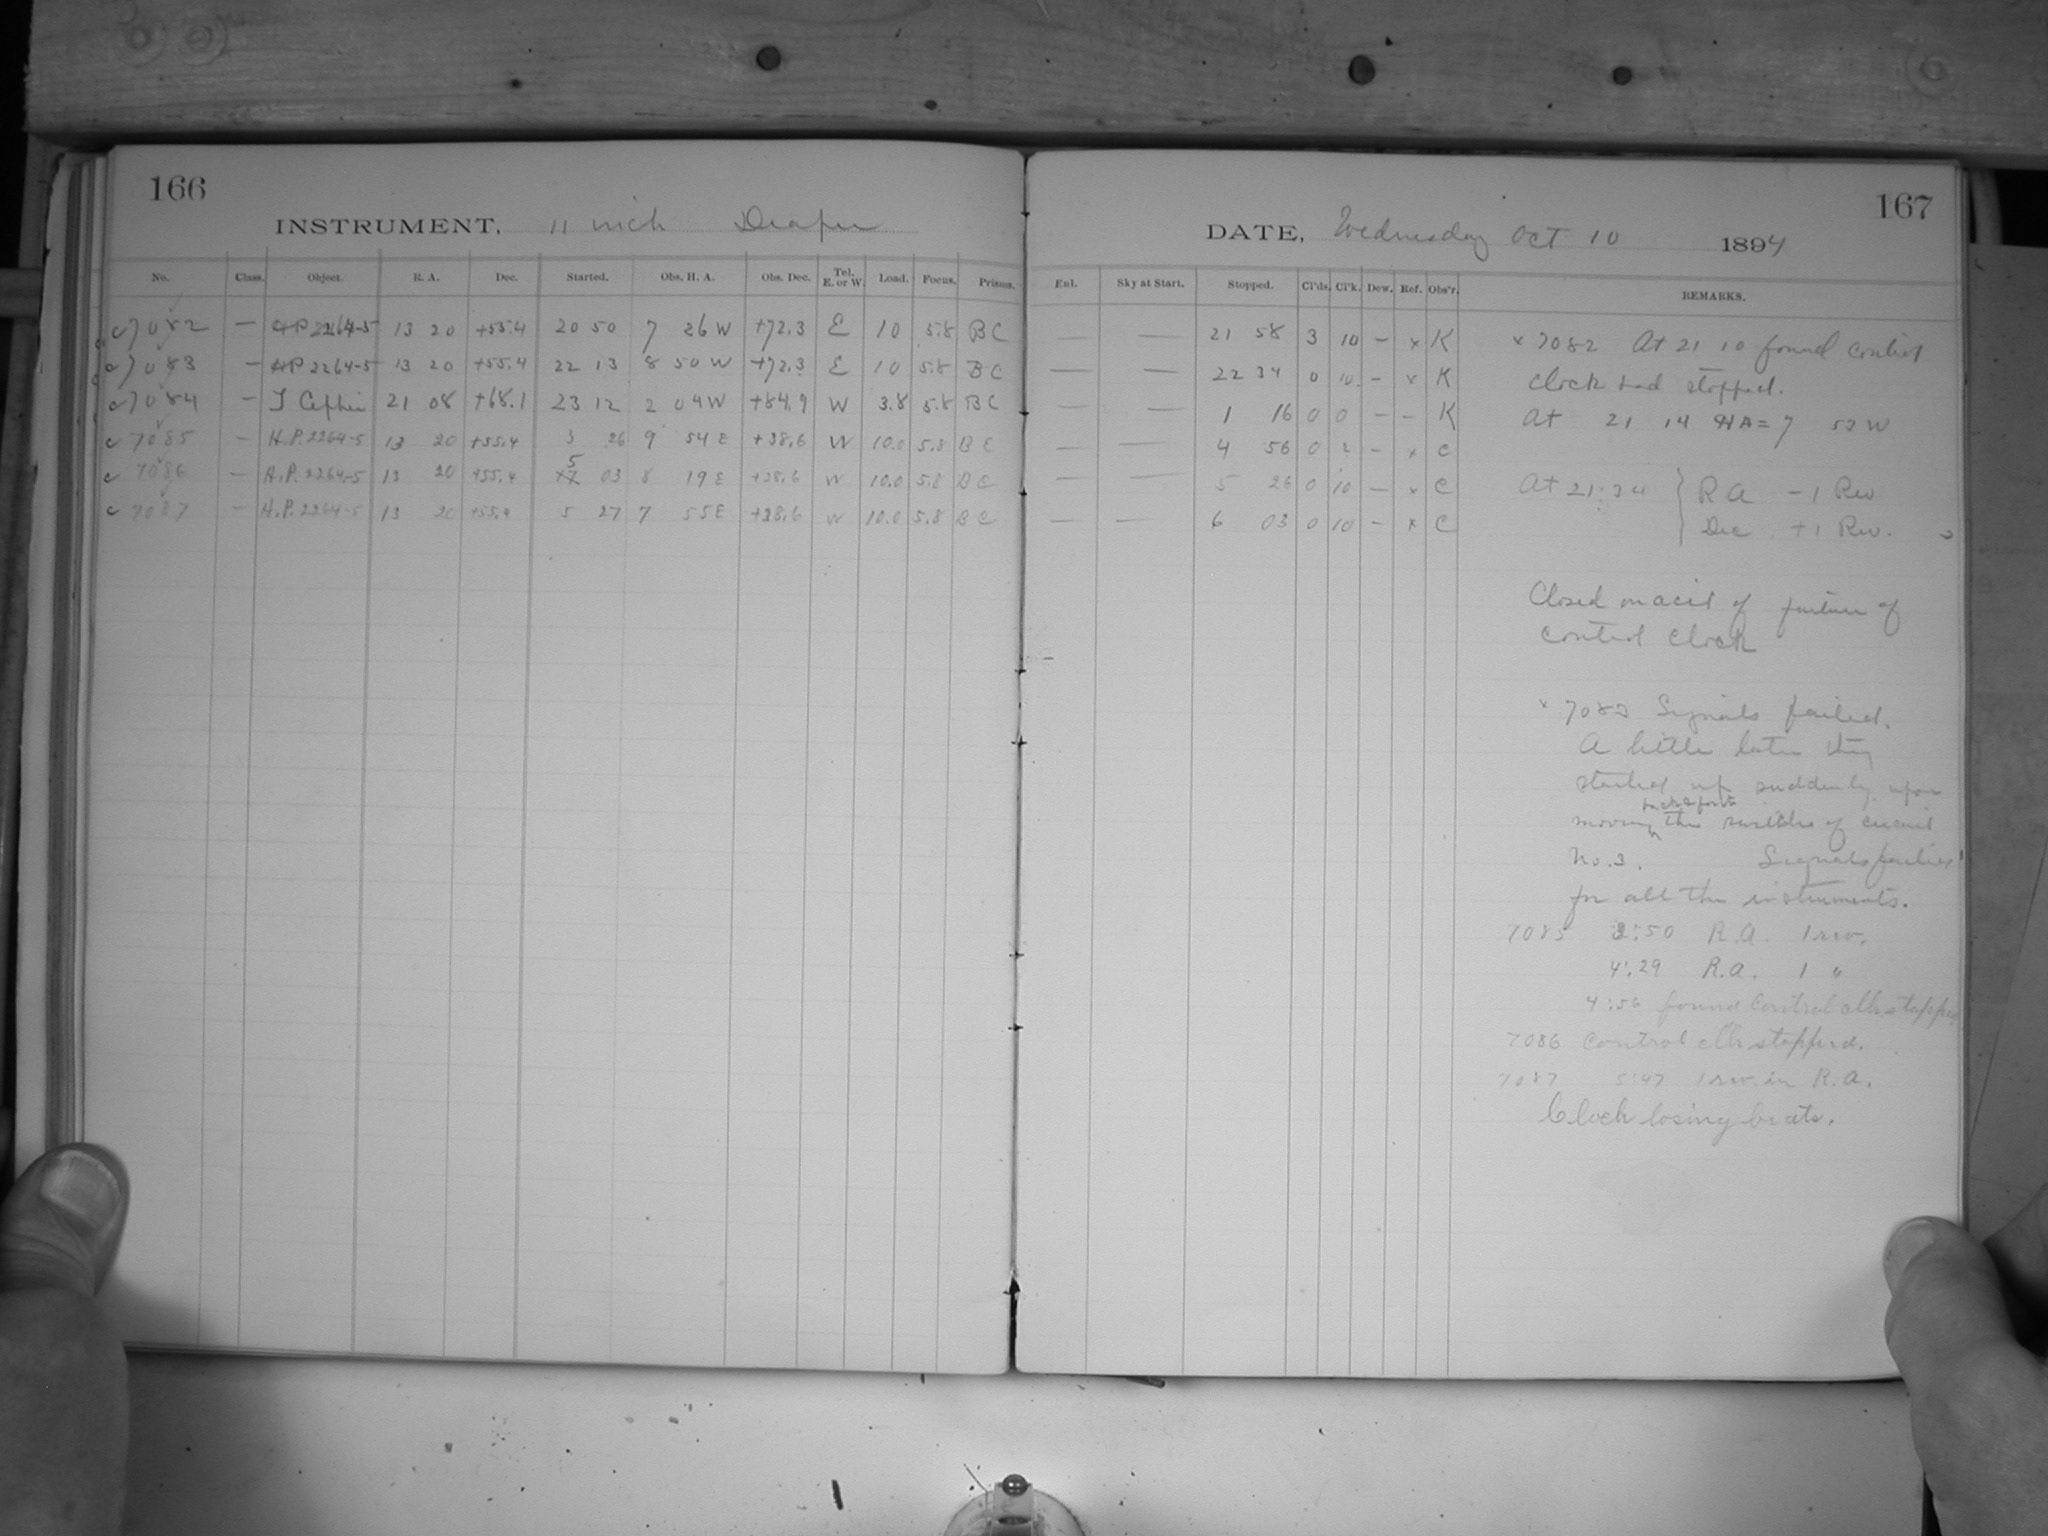 166
INSTRUMENT, 11 inch Draper
No. Class. Object. R. A. Dec. Started. Obs. H. A. Obs. Dec. Tel. E. or W. Load. Focus. Prisms.
c 7082 — H.P. 2264-5 13 20 +55.4 20 50 7 26 W +72.3 E 10 5.8 B C
c 7083 — H.P. 2264-5 13 20 +55.4 22 13 8 50 W +72.3 E 10 5.8 B C
c 7084 — T Cephei 21 08 +68.1 23 12 2 04 W +84.9 W 3.8 5.8 B C
c 7085 — H.P. 2264-5 13 20 +55.4 3 26 9 54 E +38.6 W 10.0 5.8 B C
c 7086 — H.P. 2264-5 13 20 +55.4 5 03 8 19 E +38.6 W 10.0 5.8 B C
c 7087 — H.P. 2264-5 13 20 +55.4 5 27 7 55 E +38.6 W 10.0 5.8 B C
167
DATE, Wednesday Oct 10 1894
Enl. Sky at Start. Stopped. Cl'ds. Cl'k. Dew. Ref. Obs'r. REMARKS.
— — 21 58 3 10 — x K
— — 22 34 0 10. — x K
— — 1 16 0 0 — — K
— — 4 56 0 2 — x C
— — 5 26 0 10 — x C
— — 6 03 0 10 — x C
x 7082 At 21 10 found control
clock had stopped.
At 21 14 HA = 7 52 W
At 21:34 } R A — 1 Rev
Dec. + 1 Rev.
Closed on acct of failure of
control clock
x 7083 Signals failed.
A little later they
started up suddenly upon
back & forth
moving the switches of circuit
No. 3. Signals failed
for all the instruments.
7085 3:50 R.A. 1 rev.
4:29 R.A. 1 "
4:56 found control clk stopped
7086 Control clk stopped.
7087 5:47 1 rev. in R.A.
Clock losing beats.